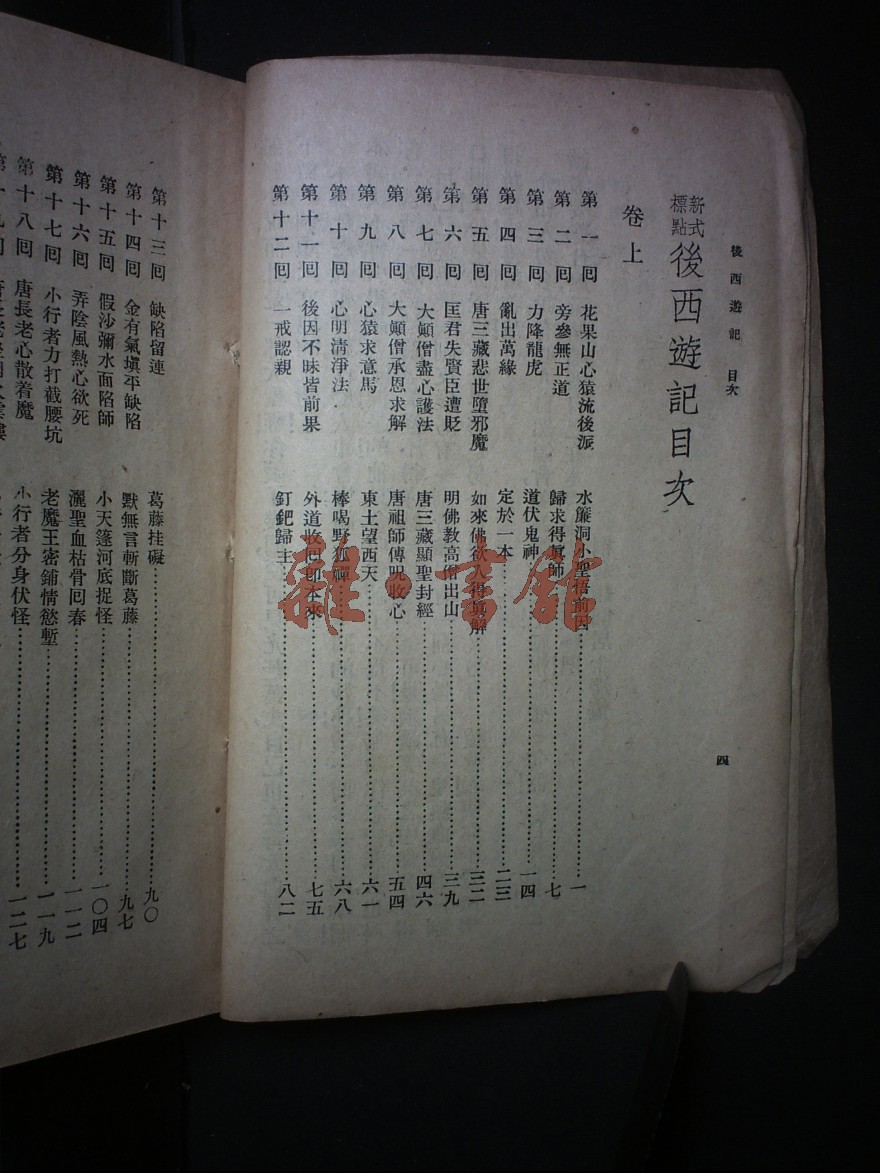 後西遊記 目次
四
新式標點後西遊記目次
卷上
第一回 花果山心猿流後派 水簾洞小聖悟前因……一
第二回 旁參無正道 歸求得眞師……七
第三回 力降龍虎 道伏鬼神……一四
第四回 亂出萬緣 定於一本……二三
第五回 唐三藏悲世墮邪魔 如來佛欲人得眞解……三二
第六回 匡君失賢臣遭貶 明佛教高僧出山……三九
第七回 大顚僧盡心護法 唐三藏顯聖封經……四六
第八回 大顚僧承恩求解 唐祖師傳呪收心……五四
第九回 心猿求意馬 東土望西天……六一
第十回 心明清淨法 棒喝野狐禪……六八
第十一回 後因不昧皆前果 外道收回卽本來……七五
第十二回 一戒認親 釘鈀歸主……八二
第十三回 缺陷留連 葛藤挂礙……九〇
第十四回 金有氣塡平缺陷 默無言斬斷葛藤……九七
第十五回 假沙彌水面陷師 小天篷河底捉怪……一〇四
第十六回 弄陰風熱心欲死 灑聖血枯骨回春……一一二
第十七回 小行者力打截腰坑 老魔王密鋪情慾塹……一一九
第十八回 唐長老心散着魔 小行者分身伏怪……一二七
第十九回
雜·書館